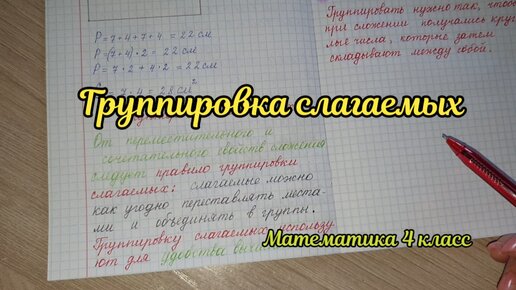 P = 7 + 4 + 7 + 4 = 22 см
P = (7 + 4) · 2 = 22 см
P = 7 · 2 + 4 · 2 = 22 см
Группировка слагаемых
От переместительного и
сочетательного свойств сложения
следует правило группировки
слагаемых: слагаемые можно
как угодно переставлять места-
ми и объединять в группы.
Группировку слагаемых использу
ют для удобства
Группировать нужно так, чтобы
при сложении получались круг
лые числа, которые затем
складывают между собой.
Математика 4 класс